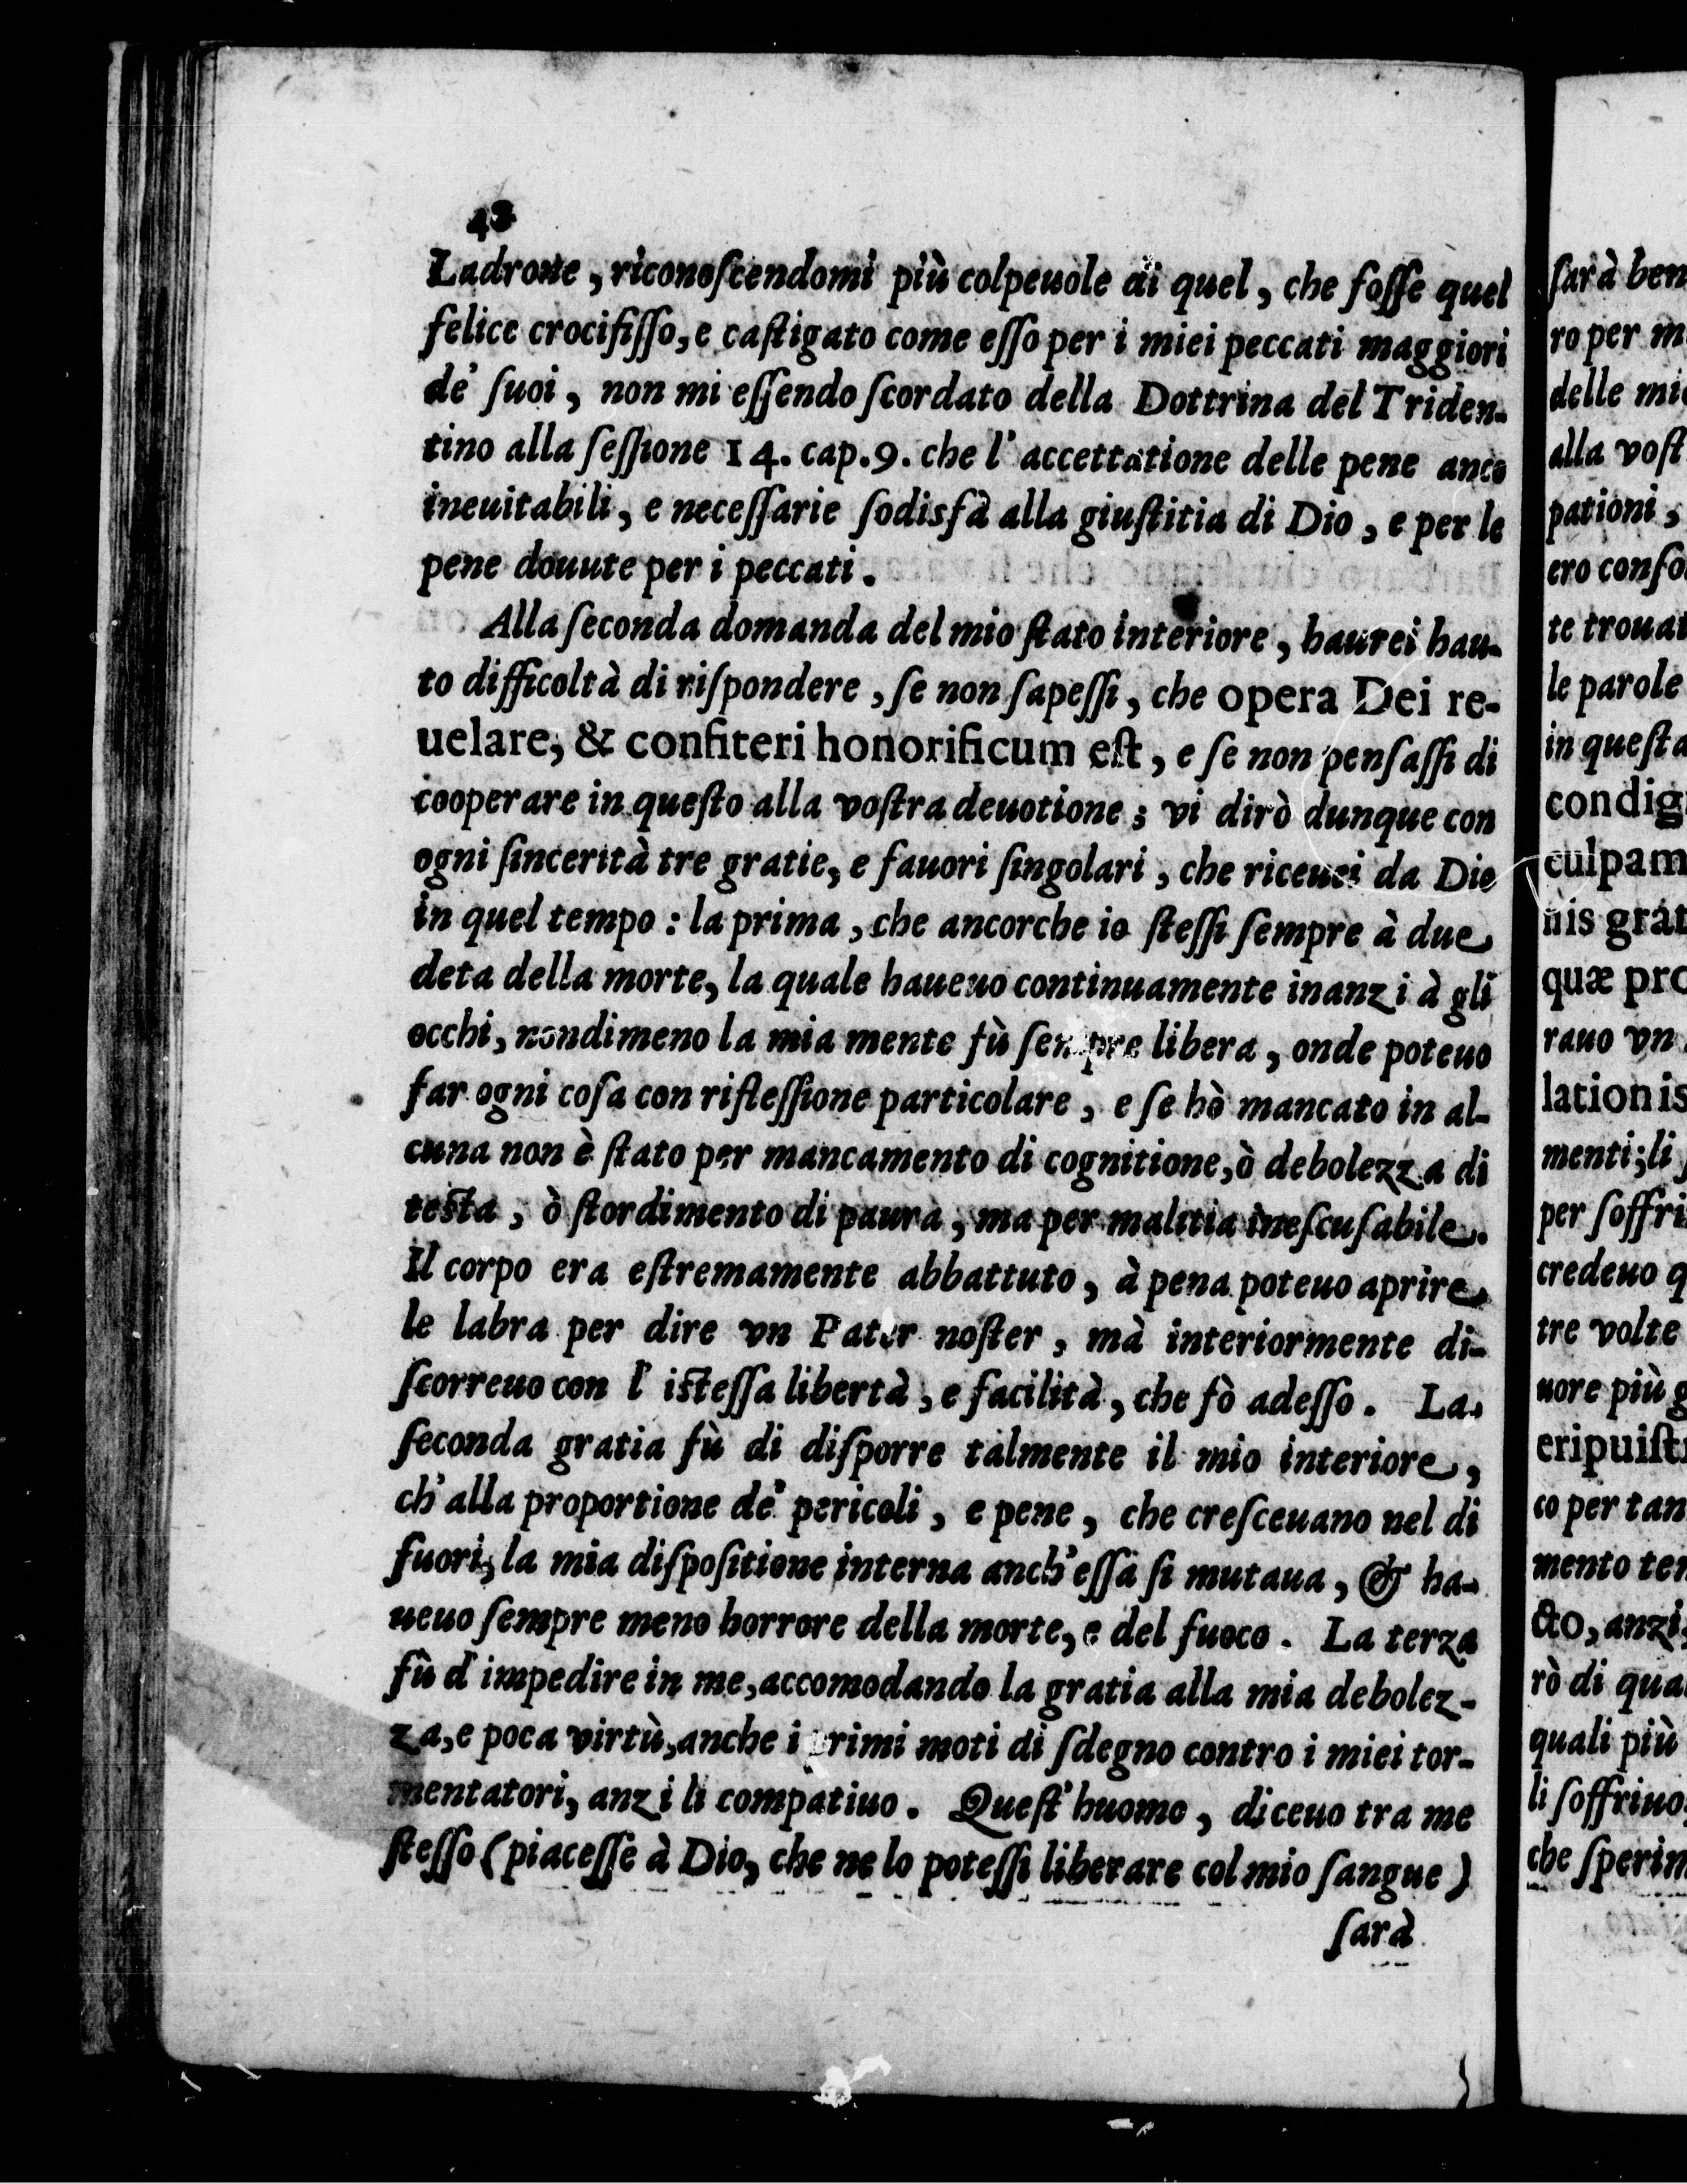 48
Ladrone, riconoſcendomi più colpeuole di quel, che foſſe quel
felice crocifiſſo, e caſtigato come eſſo per i miei peccati maggiori
de' ſuoi, non mi eſſendo ſcordato della Dottrina del Triden-
tino alla ſeſſione 14. cap. 9. che l' accettatione delle pene anco
ineuitabili, e neceſſarie ſodisfà alla giuſtitia di Dio, e per le
pene douute per i peccati.
Alla ſeconda domanda del mio ſtato interiore, haurei hau-
to difficoltà di riſpondere, ſe non ſapeſſi, che opera Dei re-
uelare, & confiteri honorificum eſt, e ſe non penſaſſi di
cooperare in queſto alla voſtra deuotione; vi dirò dunque con
ogni ſincerità tre gratie, e fauori ſingolari, che riceuei da Dio
in quel tempo: la prima, che ancorche io ſteſſi ſempre à due
deta della morte, la quale haueuo continuamente inanzi à gli
occhi, nondimeno la mia mente fù ſempre libera, onde poteuo
far ogni coſa con rifleſſione particolare, e ſe hò mancato in al-
cuna non è ſtato per mancamento di cognitione, ò debolezza di
testa, ò ſtordimento di paura, ma per malitia ineſcuſabile.
Il corpo era eſtremamente abbattuto, à pena poteuo aprire
le labra per dire vn Pater noſter, mà interiormente di-
ſcorreuo con l' isteſſa libertà, e facilità, che fò adeſſo. La
ſeconda gratia fù di diſporre talmente il mio interiore,
ch' alla proportione de' pericoli, e pene, che creſceuano nel di
fuori, la mia diſpoſitione interna anch' eſſa ſi mutaua, & ha-
ueuo ſempre meno horrore della morte, e del fuoco. La terza
fù d' impedire in me, accomodando la gratia alla mia debolez-
za, e poca virtù, anche i primi moti di ſdegno contro i miei tor-
mentatori, anzi li compatiuo. Queſt' huomo, diceuo tra me
ſteſſo (piaceſſe à Dio, che ne lo poteſſi liberare col mio ſangue)
ſarà
ſarà ben
ro per m
delle mi
alla voſt
pationi,
ero conſo
te trouat
le parole
in queſta
condig
culpam
nis grat
quæ pro
rauo vn
lationis
menti; li
per ſoffri
credeuo q
tre volte
uore più g
eripuiſti
co per tan
mento ter
cto, anzi
rò di qua
quali più
li ſoffriuo
che ſperim